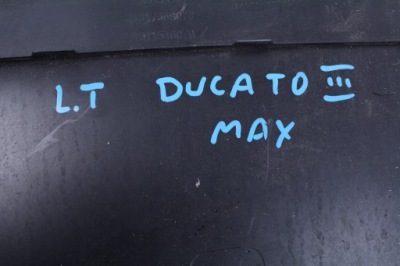 L.T DUCATO III
MAX